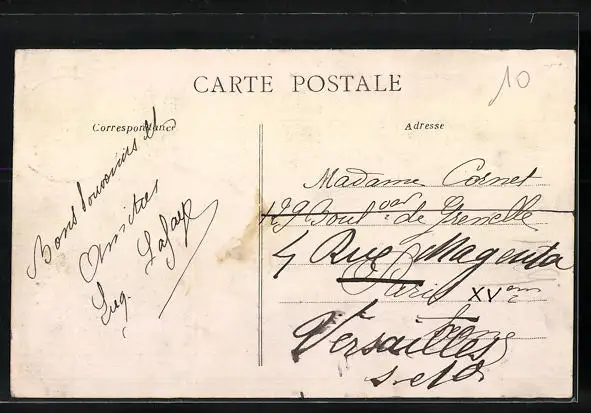 CARTE POSTALE
10
Correspondance
Adresse
Bons Souvenirs et
Amitiés
Eug. Lafaye
Madame Cornet
129 Boulvar de Grenelle
4 Rue Magenta
Paris XVem
Versailles
S-et-O